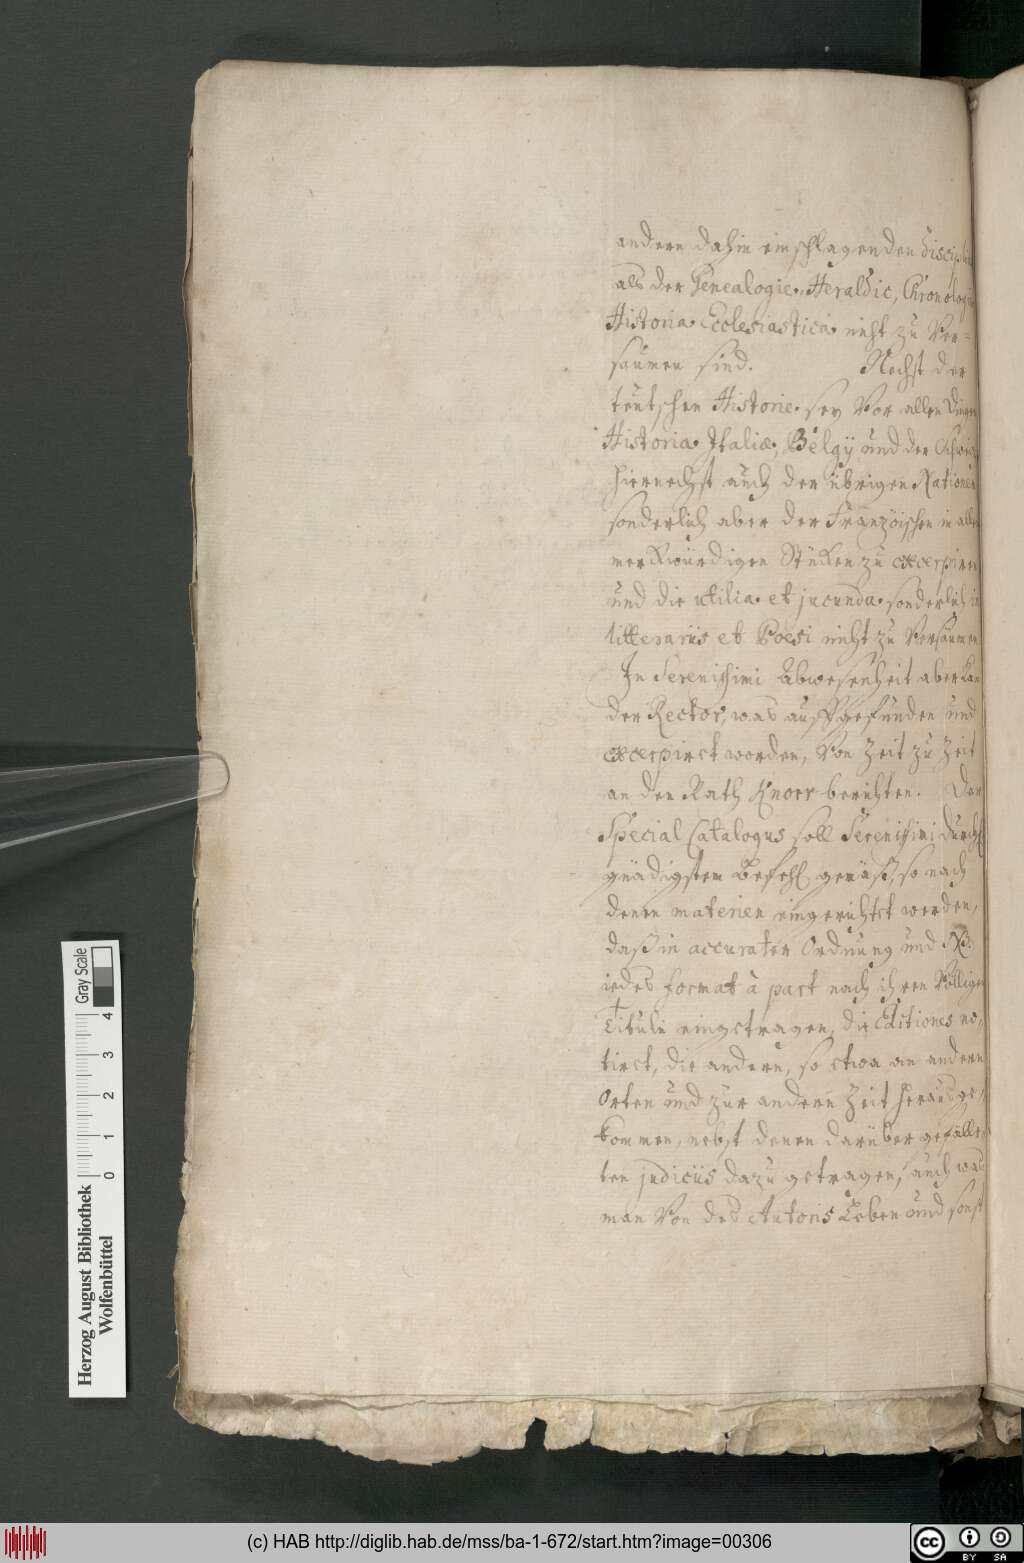 andern dahin einschlagenden Disciplin
als der Genealogie, Heraldic, Chronologie
Historia Ecclesiastica nicht zu ver-
säumen sind. Nechst der
teutschen Historie sey vor allen Dingen
Historia Italiæ, Belgÿ und der Schweiz
hiernechst auch der übrigen Nationen
sonderlich aber der Französischen in allen
merkwürdigen Stücken zu excerpiren
und die utilia et jucunda sonderlich in
litterariis et Poesi nicht zu versäumen
In Serenissimi Abwesenheit aber kan
der Rector, was auffgefunden und
excerpiret worden, von Zeit zu Zeit
an den Rath Knorr berichten. Der
Special Catalogus soll Serenissimi Durchl
gnädigstem Befehl gemäß, so nach
denen materien eingerichtet werden,
daß in accurater Ordnung und
iedes format à part nach ihren völligen
Tituln eingetragen, die Editiones no-
tiret, die andern, so etwa an andern
Orten und zur andern Zeit herausge-
kommen, nebst denen darüber gefälle-
ten judiciis dazu getragen, auch was
man von des Autoris Leben und sonst
Herzog August Bibliothek
Wolfenbüttel
0 1 2 3 4
Gray Scale
(c) HAB http://diglib.hab.de/mss/ba-1-672/start.htm?image=00306
cc BY SA